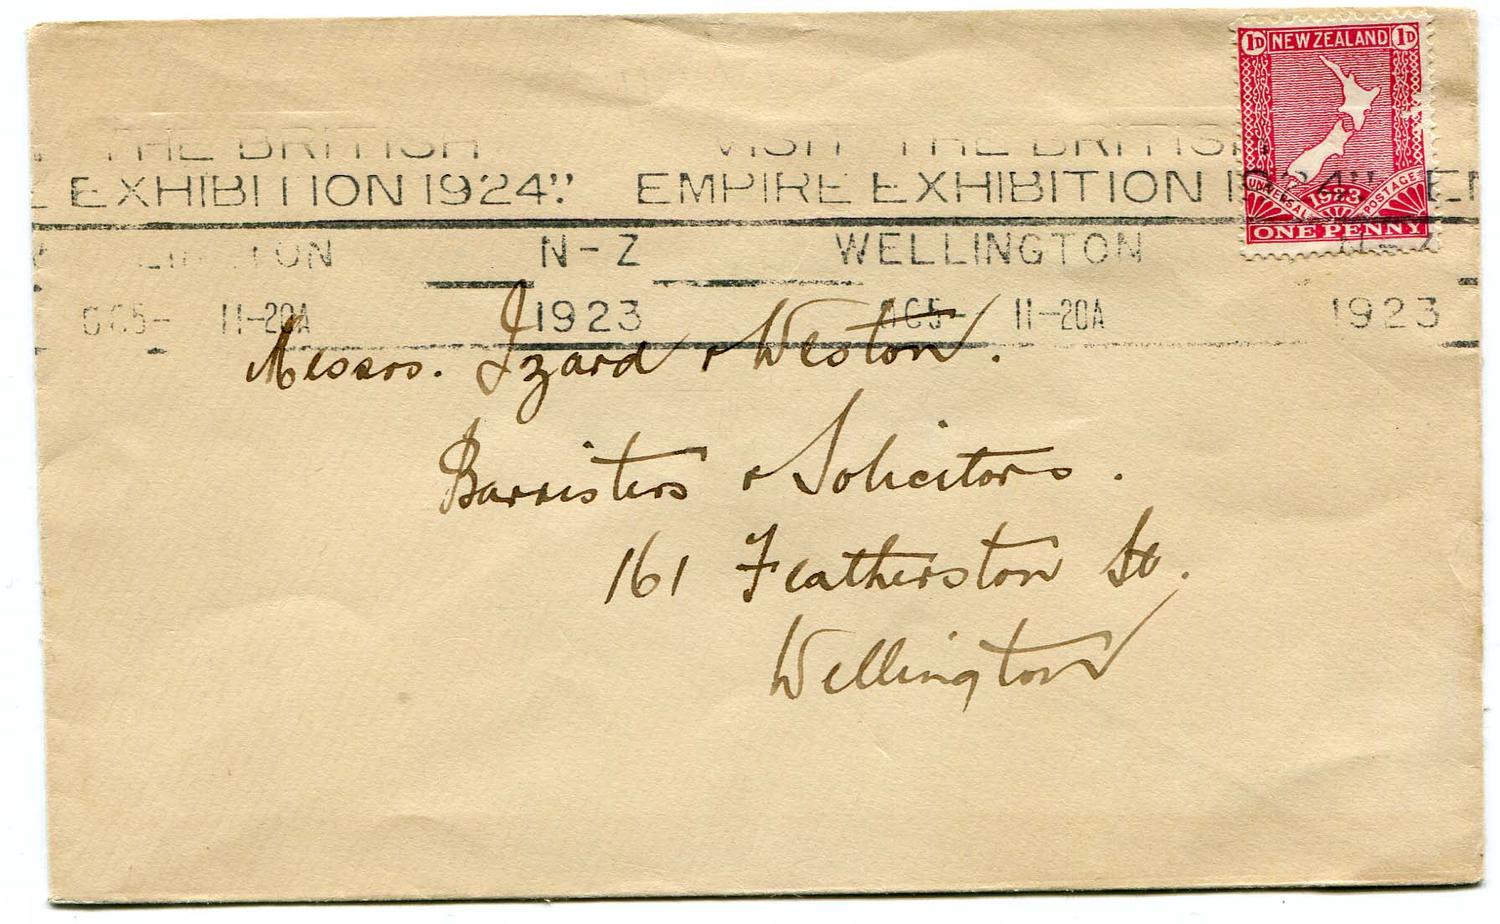 1D NEW ZEALAND 1D
UNIVERSAL 1923 POSTAGE
ONE PENNY
THE BRITISH VISIT THE BRITISH
EXHIBITION 1924" EMPIRE EXHIBITION 1924"
N-Z WELLINGTON
OC5- 11-20A 1923 OC5- 11-20A 1923
Messrs. Izard & Weston.
Barristers & Solicitors.
161 Featherston St.
Wellington